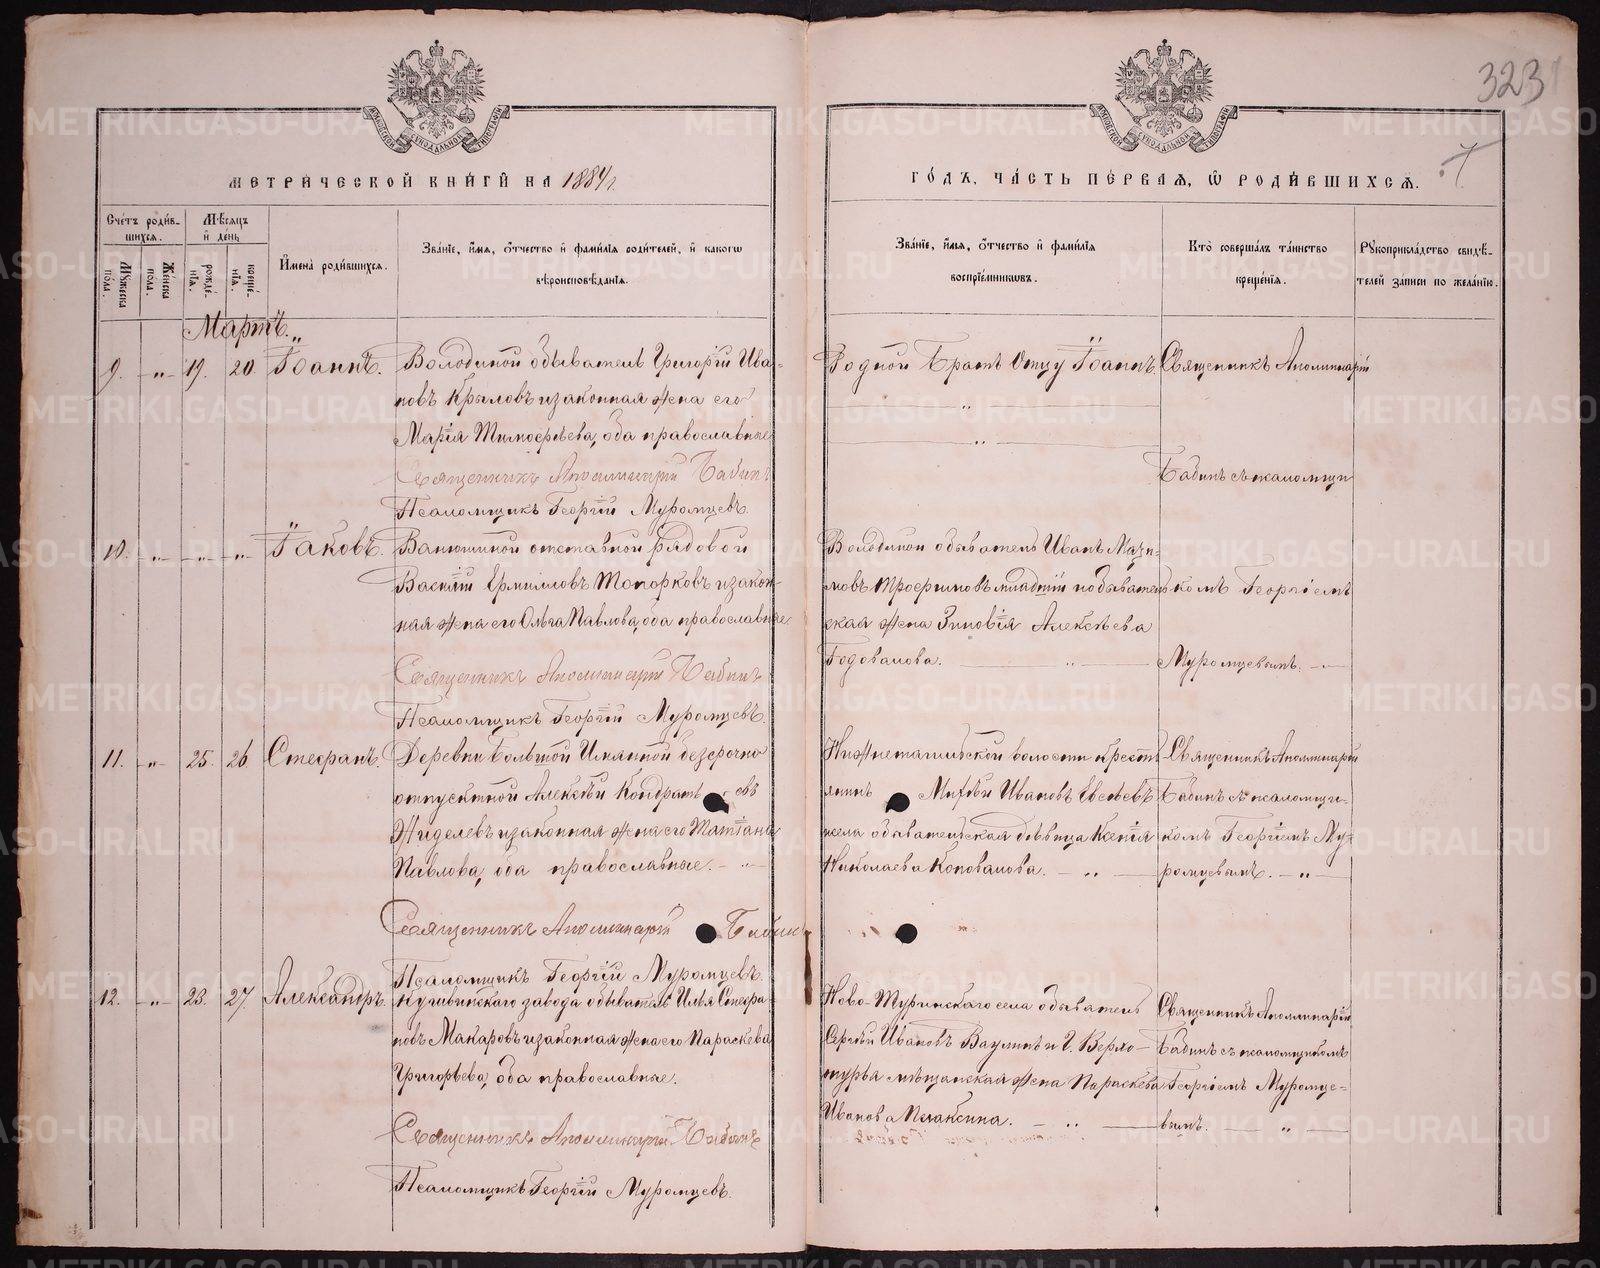 3231
7
МЕТРИЧЕСКОЙ КНИГИ НА 1884 г.
ГОДЪ, ЧАСТЬ ПЕРВАЯ, Ѡ РОДИВШИХСЯ.
Счетъ родившихся.
Мѣсяцъ и день
Мужеска пола.
Женска пола.
рожденія.
крещенія.
Имена родившихся.
Званіе, имя, отчество и фамилія родителей, и какого
вѣроисповѣданія.
Званіе, имя, отчество и фамилія
воспріемниковъ.
Кто совершалъ таинство
крещенія.
Рукоприкладство свидѣ-
телей записи по желанію.
Мартъ.
9. „ 19. 20. Іоаннъ.
обыватель Григорій Ива-
новъ Крыловъ и законная жена его
Марія Тимофѣева, оба православные
Священникъ Аполлинарій Бабинъ
Псаломщикъ Георгій Муромцевъ.
Родной братъ отцу Іоаннъ.
Священникъ Аполлинарій
Бабинъ съ псаломщи-
10. „ „ „ Іаковъ.
отставной рядовой
Василій Ермиловъ Топорковъ и закон-
ная жена его Ольга Павлова, оба православные
Священникъ Аполлинарій Бабинъ
Псаломщикъ Георгій Муромцевъ.
обыватель Иванъ
младшій и обыватель-
ская жена Зиновія Алексѣева
Годовалова.
комъ Георгіемъ
Муромцевымъ.
11. „ 25. 26. Стефанъ.
Деревни Большой Именной безсрочно
отпускной Алексѣй Кондратьевъ
и законная жена его Татіана
Павлова, оба православные.
Священникъ Аполлинарій Бабинъ
Псаломщикъ Георгій Муромцевъ.
Нижнетагильской волости крестья-
янинъ Ивановъ Евсѣевъ
села обывательская дѣвица Ксенія
Николаева Коновалова.
Священникъ Аполлинарій
Бабинъ съ псаломщи-
комъ Георгіемъ Му-
ромцевымъ.
12. „ 23. 27. Александръ.
Кушвинскаго завода обыватель Илья Стефа-
новъ Макаровъ и законная жена его Параскева
Григорьева, оба православные.
Священникъ Аполлинарій Бабинъ
Псаломщикъ Георгій Муромцевъ.
Ново-Туринскаго села обыватель
Сергѣй Ивановъ Ваулинъ и г. Верхо-
турья мѣщанская жена Параскева
Иванова
Священникъ Аполлинарій
Бабинъ съ псаломщикомъ
Георгіемъ Муромце-
вымъ.
METRIKI.GASO-URAL.RU